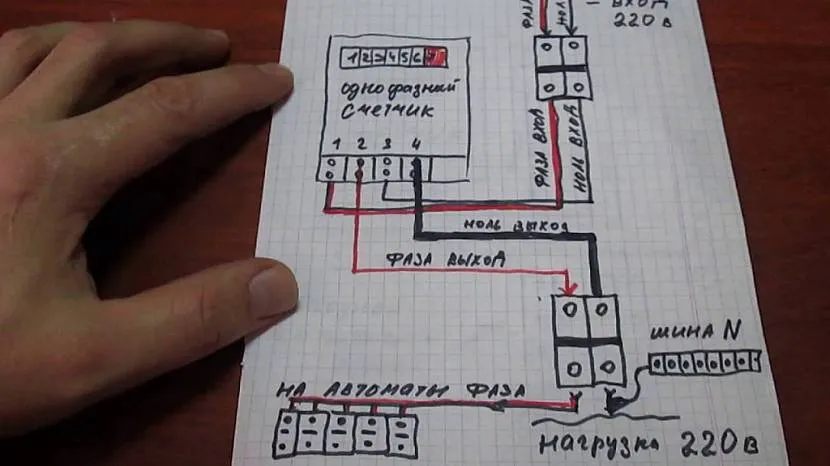 ФАЗА
НОЛЬ
— ВХОД
220 в
1 2 3 4 5 6 7
однофазный
счетчик
1 2 3 4
ФАЗА ВХОД
НОЛЬ ВХОД
НОЛЬ ВЫХОД
ФАЗА ВЫХОД
ШИНА N
НА АВТОМАТЫ ФАЗА
нагрузка 220 в